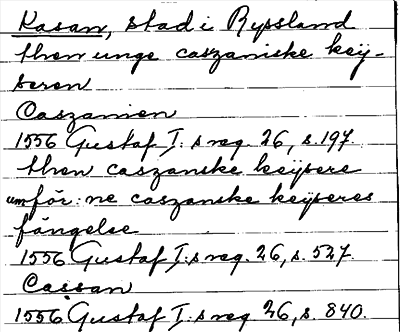 Kasan, stad i Ryssland
then unge caszaniske keÿ-
seren
Caszanien
1556 Gustaf I:s reg. 26, s. 197.
then caszanske keÿsere
umför:ne caszanske keÿseres
fängelse
1556 Gustaf I:s reg. 26, s. 527.
Cassan
1556 Gustaf I:s reg. 26, s. 840.